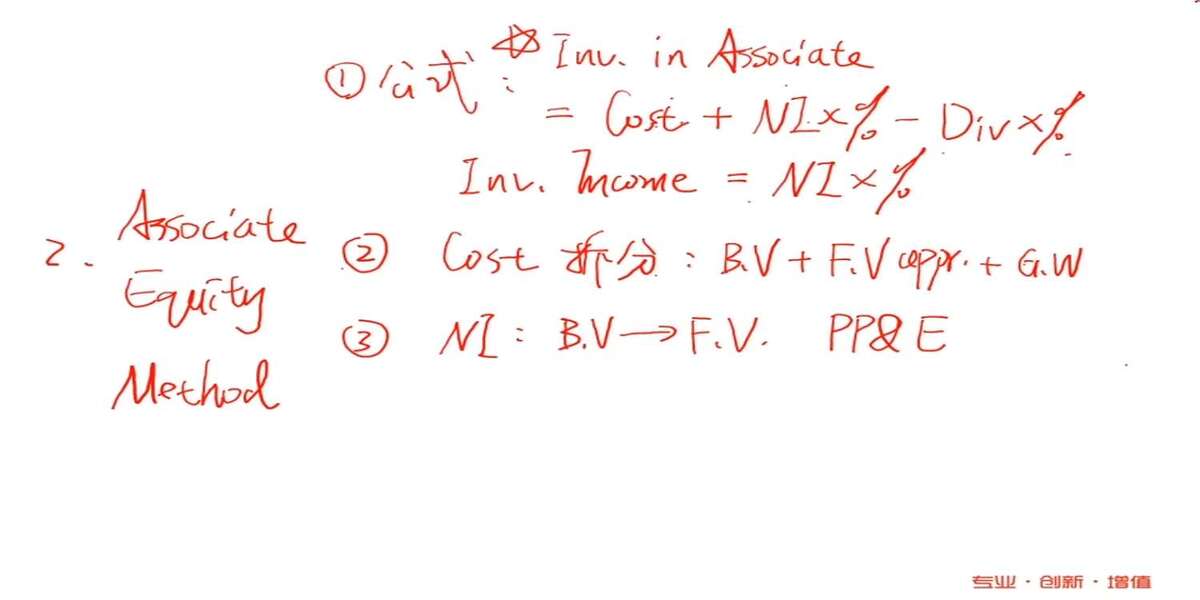 ①公式: ☆ Inv. in Associate
= Cost + NI×% - Div×%
Inv. Income = NI×%
2. Associate
Equity
Method
② Cost 拆分: B.V + F.V appr. + G.W
③ NI: B.V → F.V. PP&E
专业·创新·增值